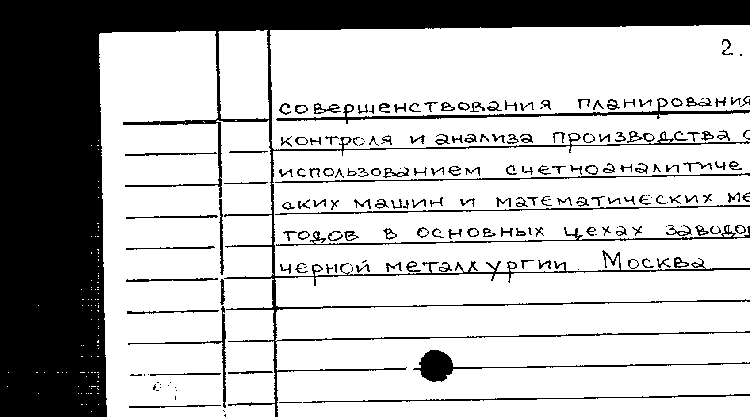 2.
совершенствования планирования
контроля и анализа производства с
использованием счетноаналитиче
ских машин и математических ме
тодов в основных цехах заводов
черной металлургии. Москва